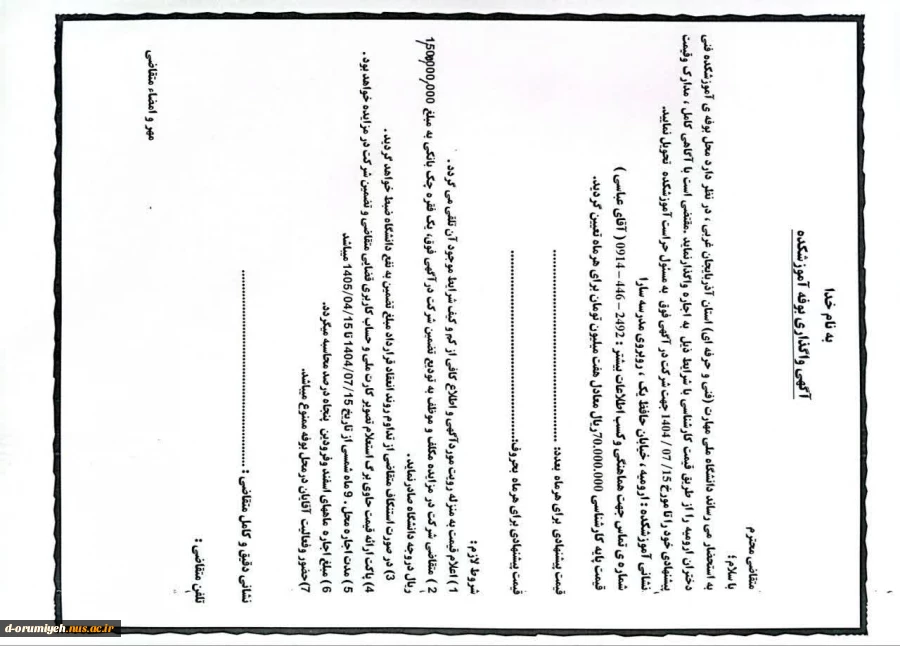 به نام خدا
آگهی واگذاری بوفه آموزشکده
متقاضی محترم
با سلام؛
به استحضار می رساند دانشگاه ملی مهارت (فنی و حرفه ای) استان آذربایجان غربی ، در نظر دارد محل بوفه ی آموزشکده فنی
دختران ارومیه را از طریق قیمت کارشناسی با شرایط ذیل به اجاره واگذار نماید .مقتضی است با آگاهی کامل ، مدارک وقیمت
پیشنهادی خود را تا مورخ 15/ 07 / 1404 جهت شرکت در آگهی فوق به مسئول حراست آموزشکده تحویل نمایید.
نشانی آموزشکده : ارومیه ، خیابان حافظ یک ، روبروی مدرسه سارا
شماره ی تماس جهت هماهنگی وکسب اطلاعات بیشتر : 2492 – 446 – 0914 ( آقای عباسی )
قیمت پایه کارشناسی 70.000.000ریال معادل هفت میلیون تومان برای هرماه تعیین گردید.
قیمت پیشنهادی برای هرماه بعدد: ........................................
قیمت پیشنهادی برای هرماه بحروف:........................................
شروط لازم:
1 ) اعلام قیمت به منزله رویت موردآگهی و اطلاع کافی از کم و کیف شرایط موجود آن تلقی می گردد .
2 ) متقاضی شرکت در مزایده مکلف و موظف به تودیع تضمین شرکت درآگهی فوق، یک فقره چک بانکی به مبلغ 150/000/000
ریال دروجه دانشگاه صادرنماید.
3) در صورت استنکاف متقاضی از تداوم روند انعقاد قرارداد مبلغ تضمین به نفع دانشگاه ضبط خواهد گردید .
4) پاکت ارائه قیمت حاوی برگ استعلام تصویر کارت ملی و حساب کاربری قضایی متقاضی و تضمین شرکت در مزایده خواهد بود.
5 ) مدت اجاره محل ، 9 ماه شمسی از تاریخ 1404/07/15 تا 1405/04/15 میباشد
6 ) مبلغ اجاره ماههای اسفند وفروردین پنجاه درصد محاسبه میگردد.
7)حضور وفعالیت آقایان درمحل بوفه ممنوع میباشد.
نشانی دقیق و کامل متقاضی : ........................................
تلفن متقاضی :
مهر و امضاء متقاضی
d-orumiyeh.nus.ac.ir